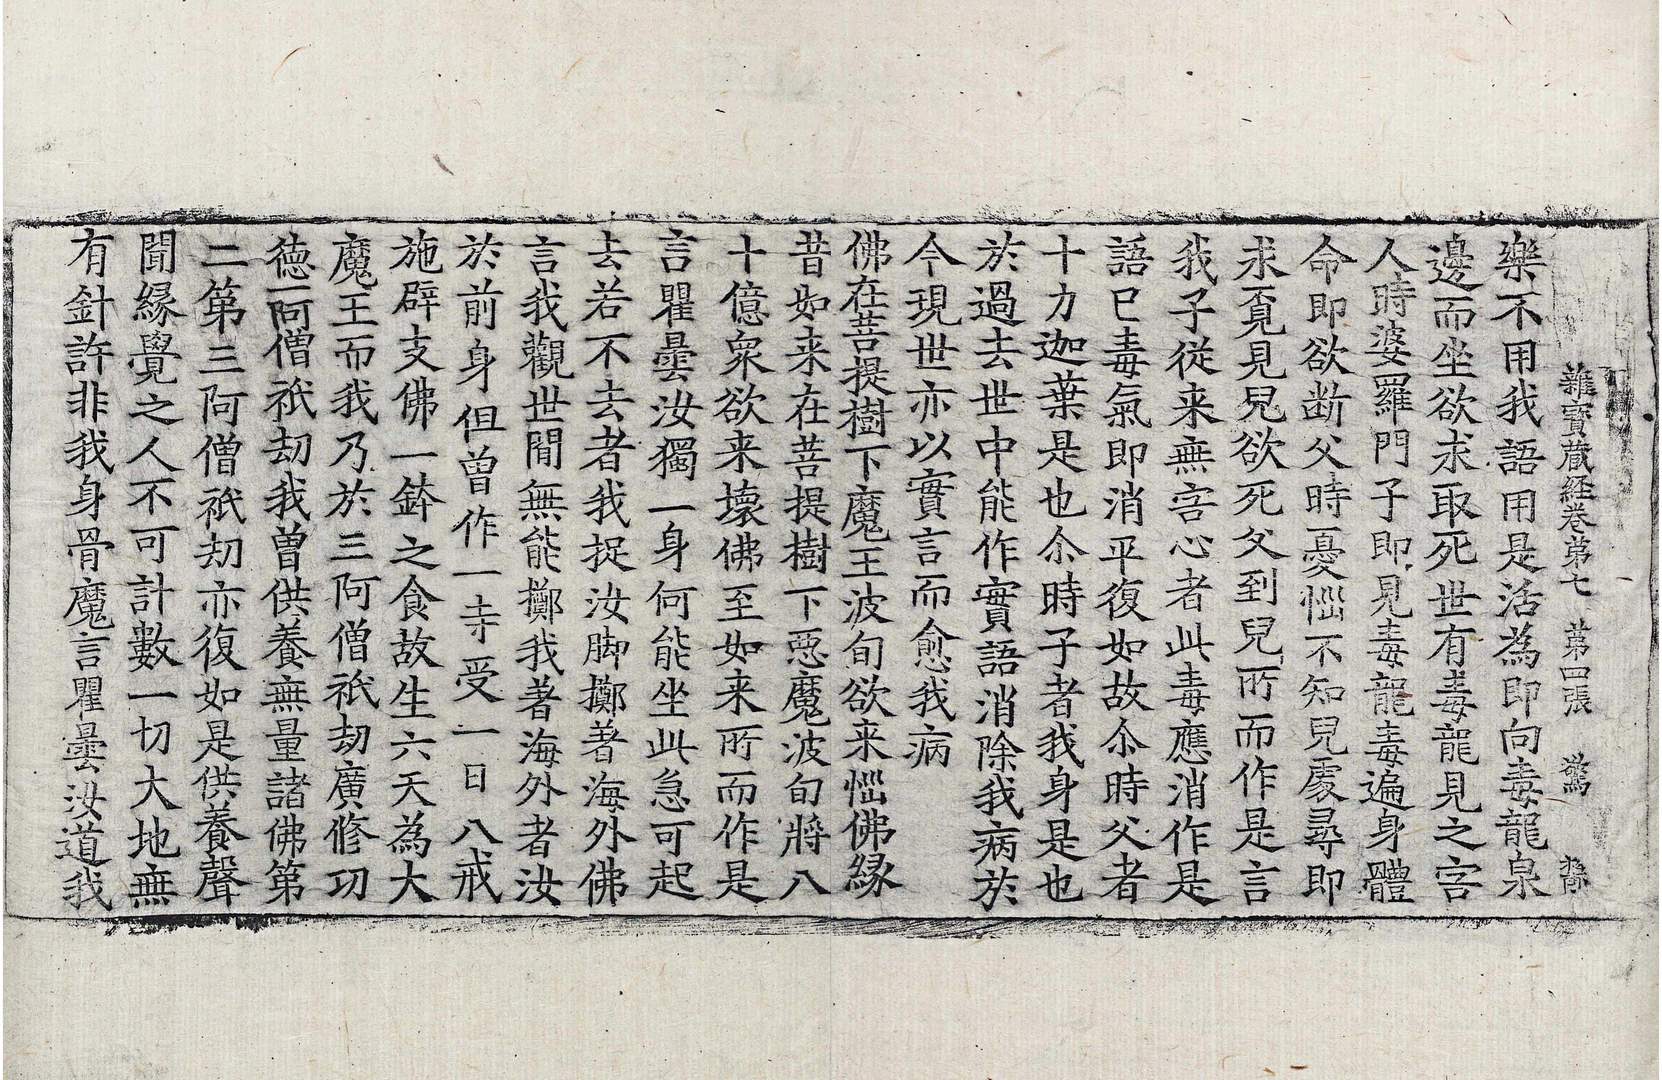 雜寶藏經卷第七 第四張 驚
樂不用我語用是活為即向毒龍泉
邊而坐欲求取死世有毒龍見之害
人時婆羅門子即見毒龍毒遍身體
命即欲断父時憂惱不知兒處尋即
求覓見兒欲死父到兒所而作是言
我子從来無害心者此毒應消作是
語已毒氣即消平復如故尒時父者
十力迦葉是也尒時子者我身是也
於過去世中能作實語消除我病於
今現世亦以實言而愈我病
佛在菩提樹下魔王波旬欲来惱佛緣
昔如来在菩提樹下惡魔波旬將八
十億衆欲来壞佛至如来所而作是
言瞿曇汝獨一身何能坐此急可起
去若不去者我捉汝脚擲著海外佛
言我觀世閒無能擲我著海外者汝
於前身但曾作一寺受一日八戒
施辟支佛一鉢之食故生六天為大
魔王而我乃於三阿僧祇劫廣修功
德一阿僧祇劫我曽供養無量諸佛第
二第三阿僧祇劫亦復如是供養聲
聞緣覺之人不可計數一切大地無
有針許非我身骨魔言瞿曇汝道我